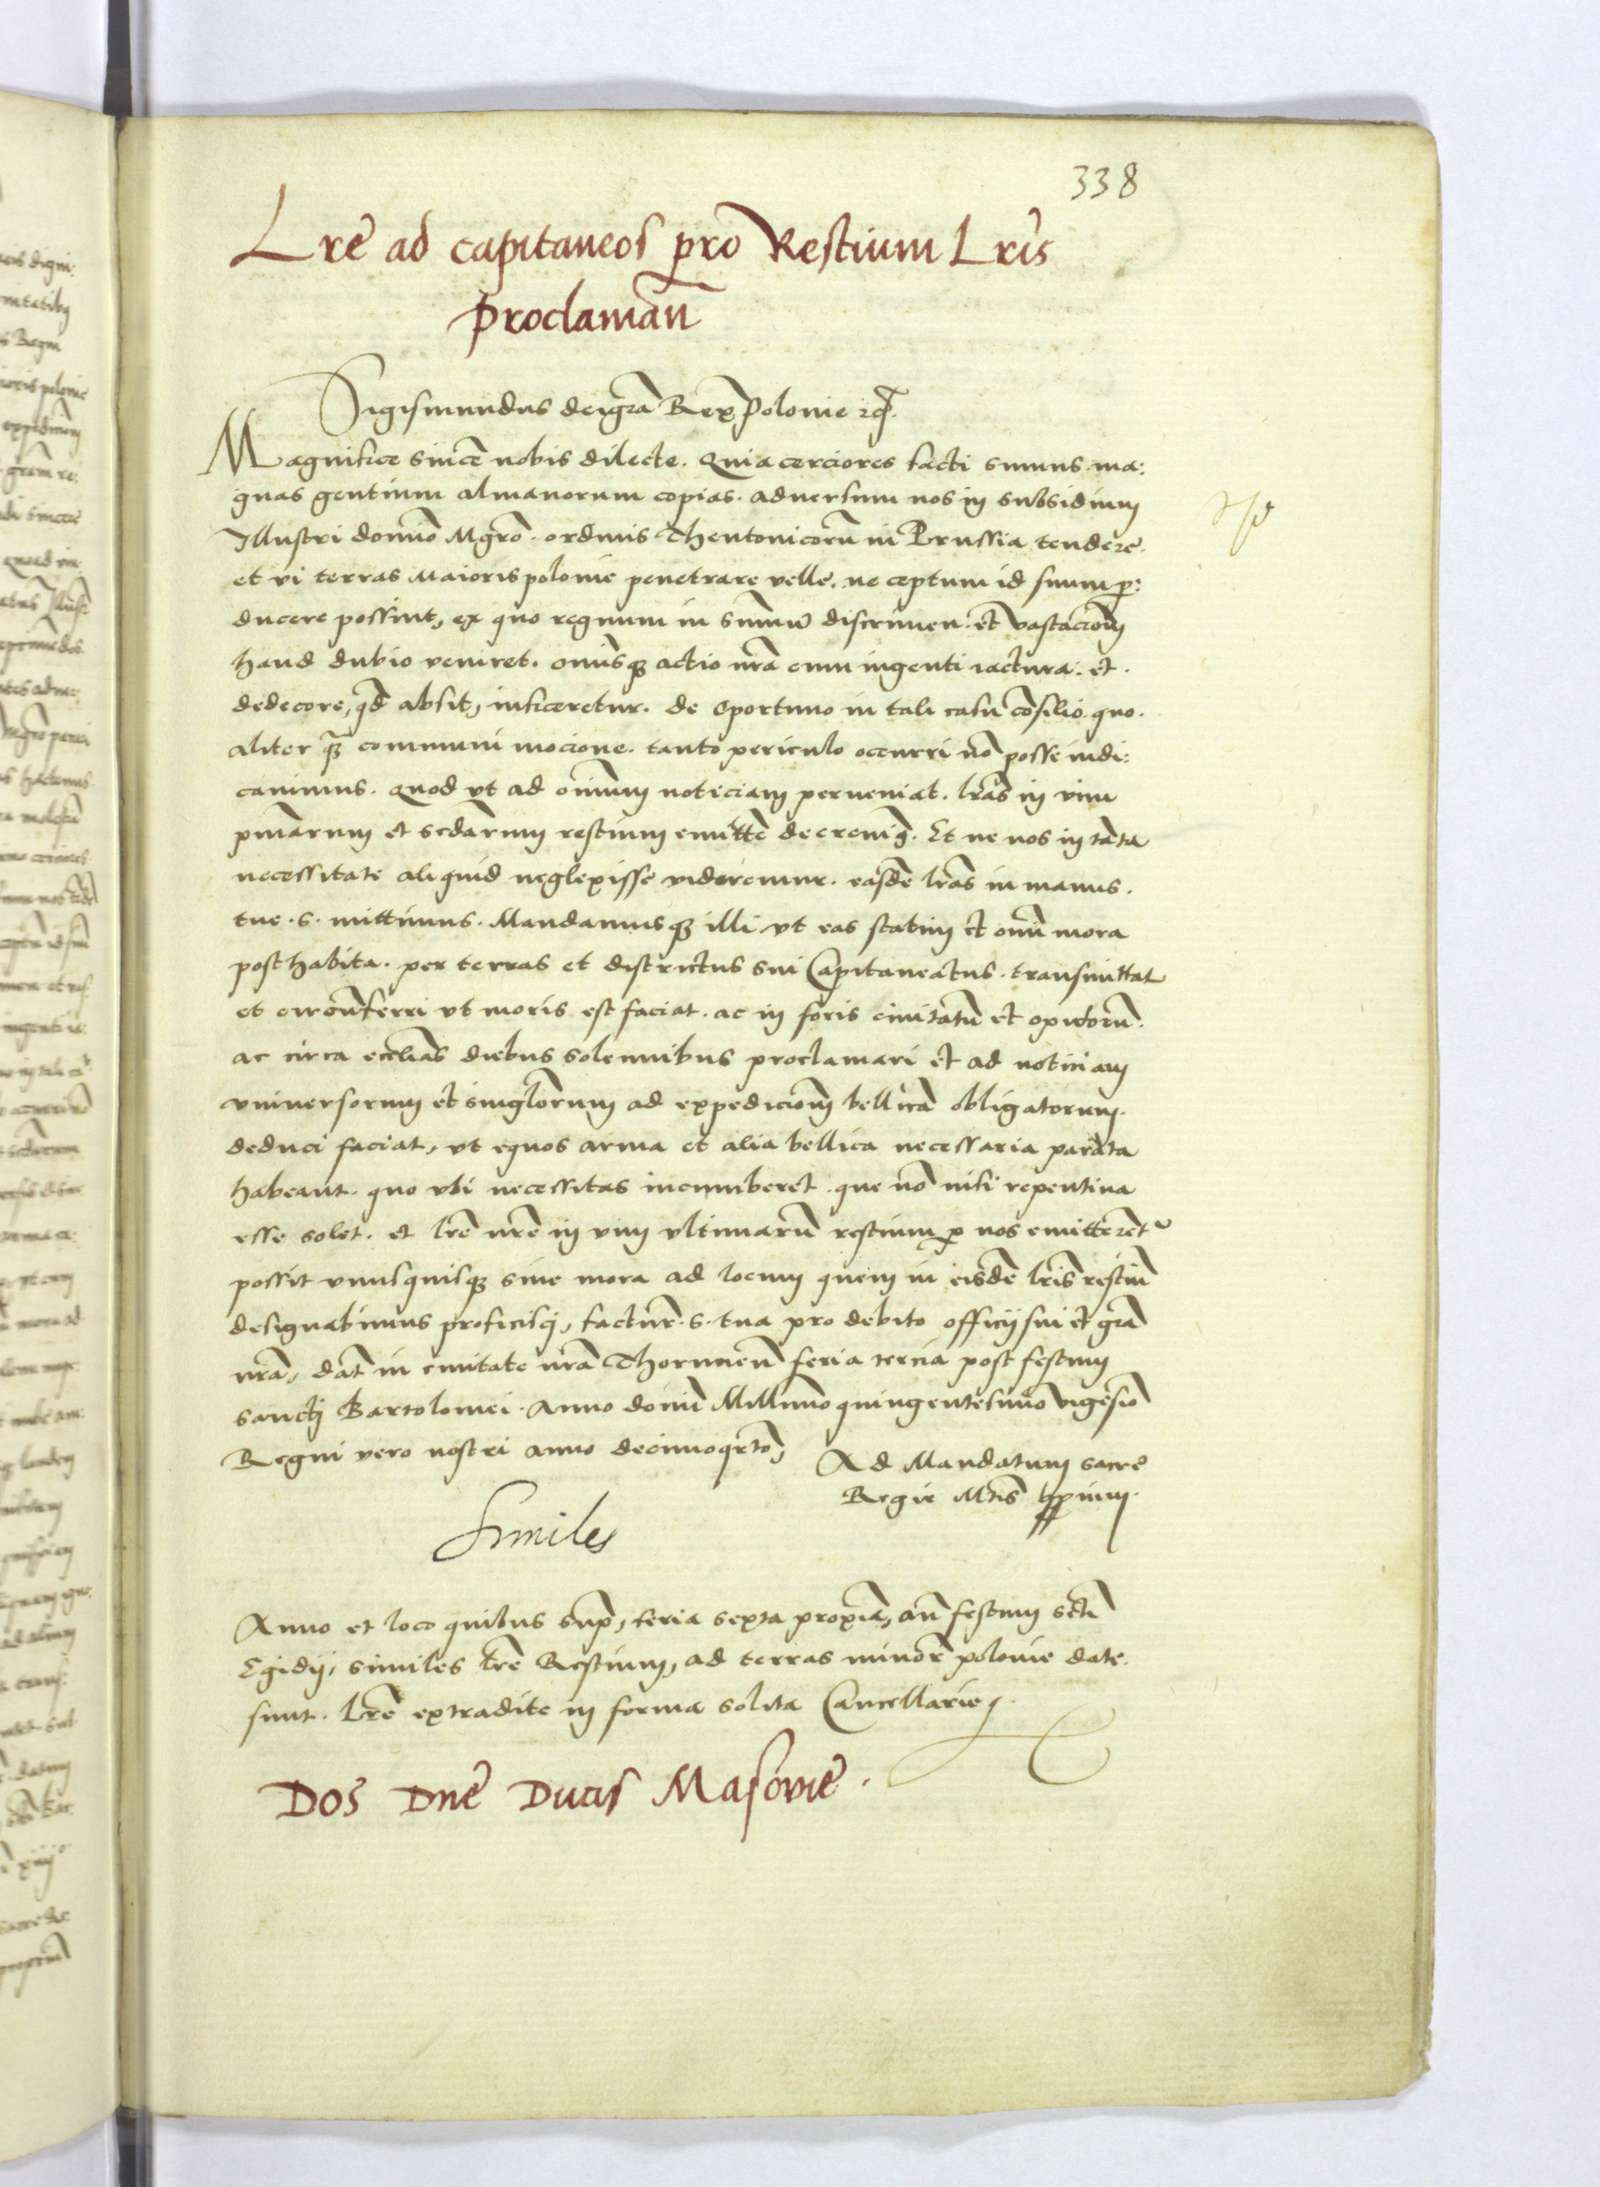 338
Lre ad capitaneos pro Restium Lris
proclaman
Sigismundus dei gra Rex Polonie
Magnifice since nobis dilecte. Quia cerciores facti sumus. ma:
gnas gentium almanorum copias. adversum nos in subsidium
Illustri domino Mgro. ordinis Theutonicoru in Prussia tendere.
et vi terras Maioris polonie penetrare velle. ne ceptum id suum p:
ducere possint, ex quo regnum in summu discrimen. et vastacionem
haud dubio veniret. omisq actio nra cum ingenti iactura. et.
dedecore, qd absit, inficeretur. de oportuno in tali casu cosilio. quo.
aliter q communi mocione. tanto periculo occurri no posse iudi:
cavimus. Quod vt ad omnium noticiam perveniat. lras in vim
pmarum et scdarum restium emitte decrevim9. Et ne nos in tata
necessitate aliquid neglexisse videremur. easde lras in manus.
tue. s. mittimus. Mandamusq illi vt eas statim et omi mora
posthabita. per terras et districtus sui Capitaneatus. transmittat
et circuferri vt moris est faciat. ac in foris civitatu et opidoru.
ac circa ecclias diebus solennibus proclamari et ad noticiam
vniversorum et singlorum ad expedicionem bellica obligatorum.
deduci faciat, vt equos arma et alia bellica necessaria parata
habeant. quo vbi necessitas incumberet. que no nisi repentina
esse solet. et lre nre in vim vltimaru restium p nos emitterent
possit vnusquisq sine mora ad locum quem in eisde lris restiu
designabimus proficisci, factur. s. tua pro debito officij sui et gra
nra, dat in civitate nra Thorunen feria tercia post festum
sancti Bartolomei. Anno domi Millimo quingentesimo vigesimo
Regni vero nostri anno decimoqrto,
Ad Mandatum sacre
Regie Mtis ppium.
Similes
Anno et loco quibus sup, feria sexta proxima, an festum scti
Egidij, similes lre Restium, ad terras minor polonie date
sunt. Lre extradite in forma solita Cancellarie
Dos Dne Ducis Masovie.